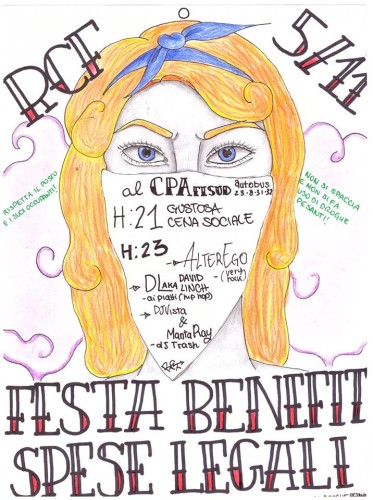 RCF
5/11
RISPETTA IL POSTO
E I SUOI OCCUPANTI!
NON SI SPACCIA
E NON SI FA
USO DI DROGHE
PESANTI!
al CPA FI SUD
autobus
23-8-31-32
H:21 GUSTOSA
CENA SOCIALE
H:23
→ ALTEREGO
- (very
rock)
→ DLAKA DAVID
LINCH
- ai piatti (hip hop)
→ DJ Vista
&
Manta Ray
- dj Trash
FESTA BENEFIT
SPESE LEGALI